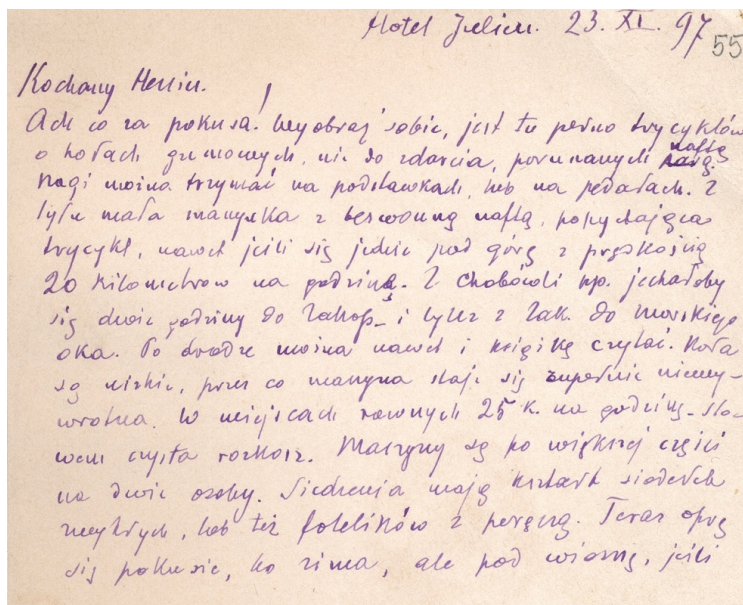 Hotel Julien. 23. XI. 97
55
Kochany Henriu.
Ach co za pokusa! Wyobraź sobie, jest tu pełno trycyklów
o kołach gumowych, nie do zdarcia, poruszanych naftą.
Nogi można trzymać na podstawkach, lub na pedałach. Z
tyłu mała maszynka z bezwonną naftą, popychająca
trycykl, nawet jeśli się jedzie pod górę z prędkością
20 kilometrów na godzinę. Z Chabówki np. jechałoby
się dwie godziny do Zakop- i tyleż z Zak. do Morskiego
oka. Po drodze można nawet i książkę czytać. Koła
są nizkie, przez co maszyna staje się zupełnie niewy-
wrotna. W miejscach równych 25 k. na godzinę- sło-
wem czysta rozkosz. Maszyny są po większej części
na dwie osoby. Siedzenia mają kształt siodełek
zwykłych, lub też fotelików z poręczą. Teraz oprę
się pokusie, bo zima, ale pod wiosnę, jeśli